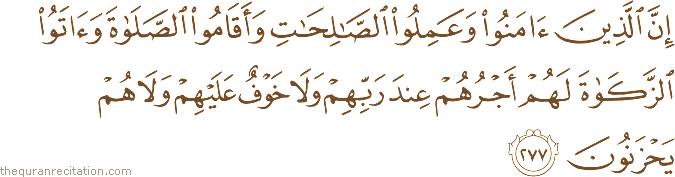 إِنَّ ٱلَّذِينَ ءَامَنُوا۟ وَعَمِلُوا۟ ٱلصَّـٰلِحَـٰتِ وَأَقَامُوا۟ ٱلصَّلَوٰةَ وَءَاتَوُا۟
ٱلزَّكَوٰةَ لَهُمْ أَجْرُهُمْ عِندَ رَبِّهِمْ وَلَا خَوْفٌ عَلَيْهِمْ وَلَا هُمْ
يَحْزَنُونَ ٢٧٧
thequranrecitation.com